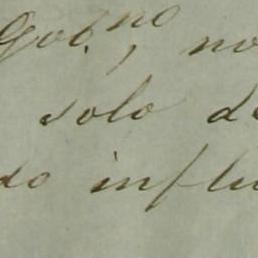 Gob.no, no
solo de
do influ